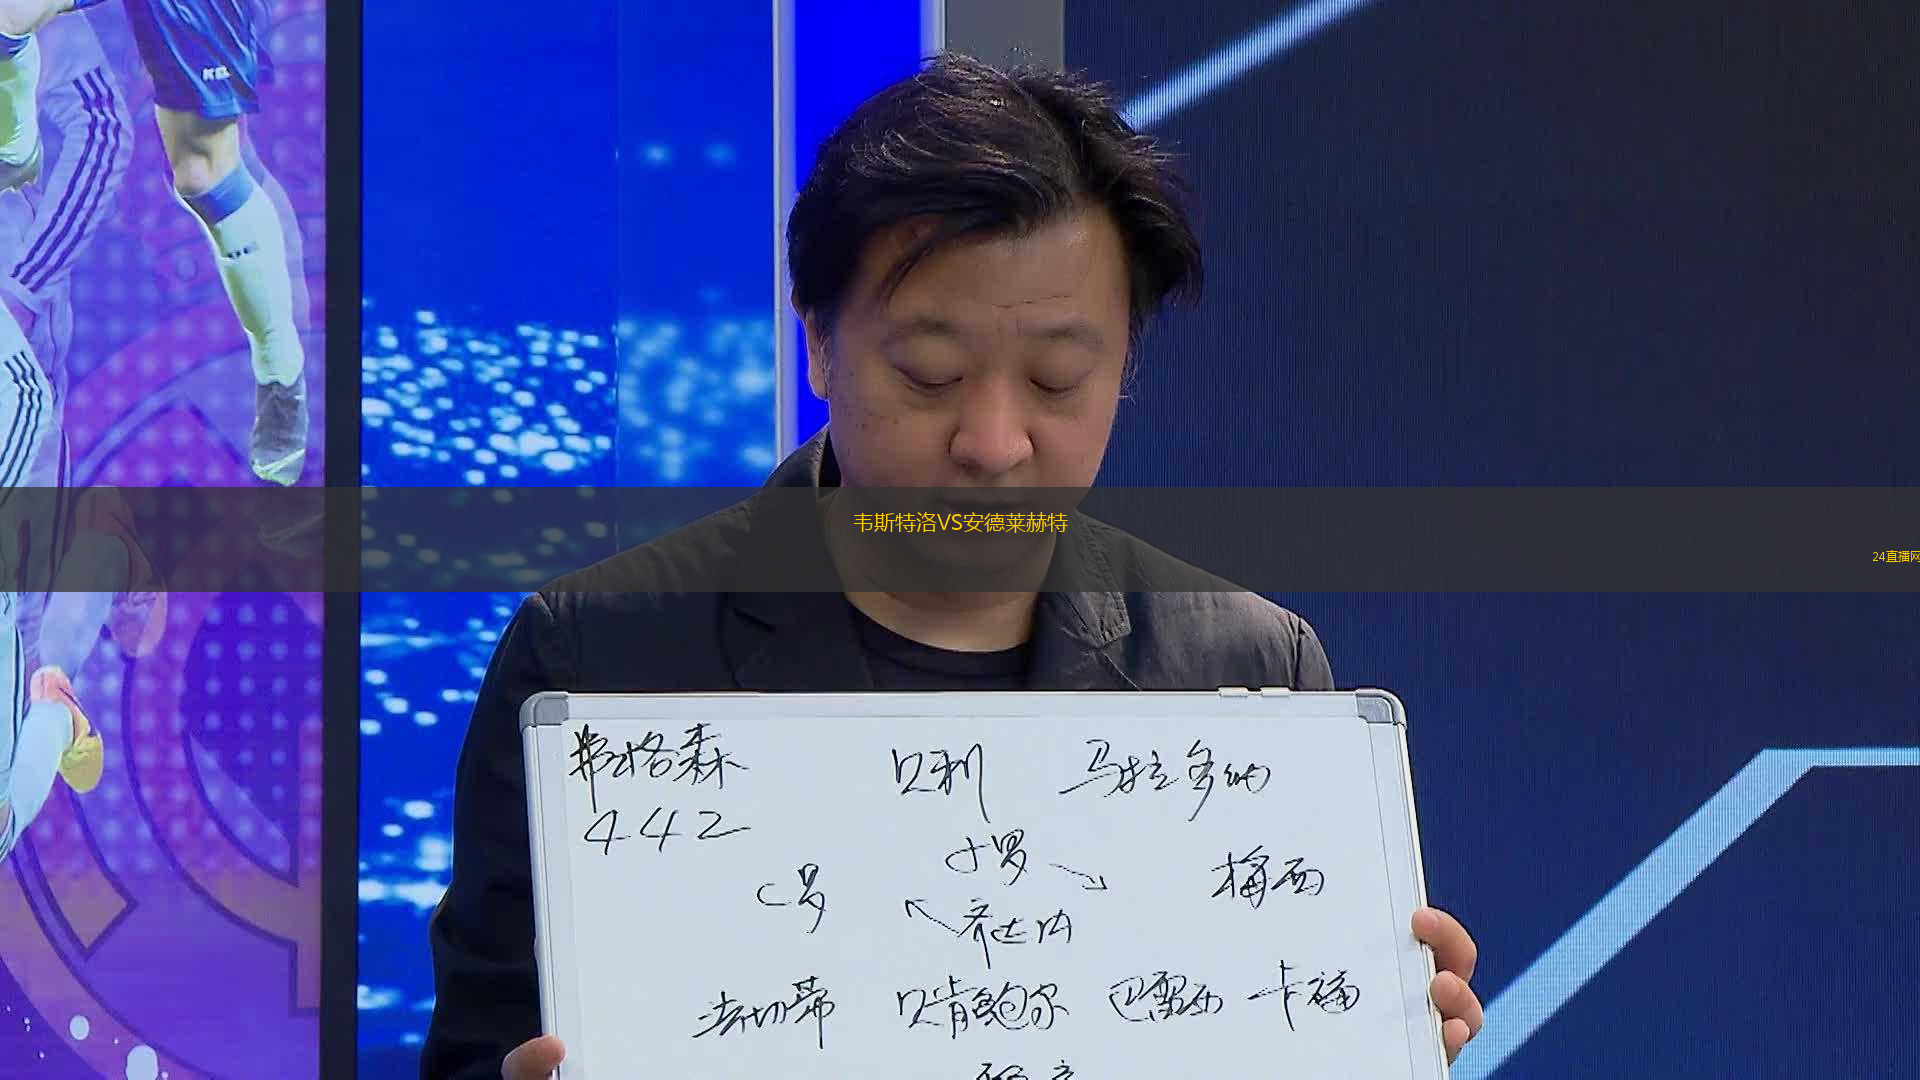 韦斯特洛VS安德莱赫特
24直播网
弗格森 贝利 马拉多纳
442
小罗
C罗 梅西
齐达内
法切蒂 贝肯鲍尔 巴雷西 卡福